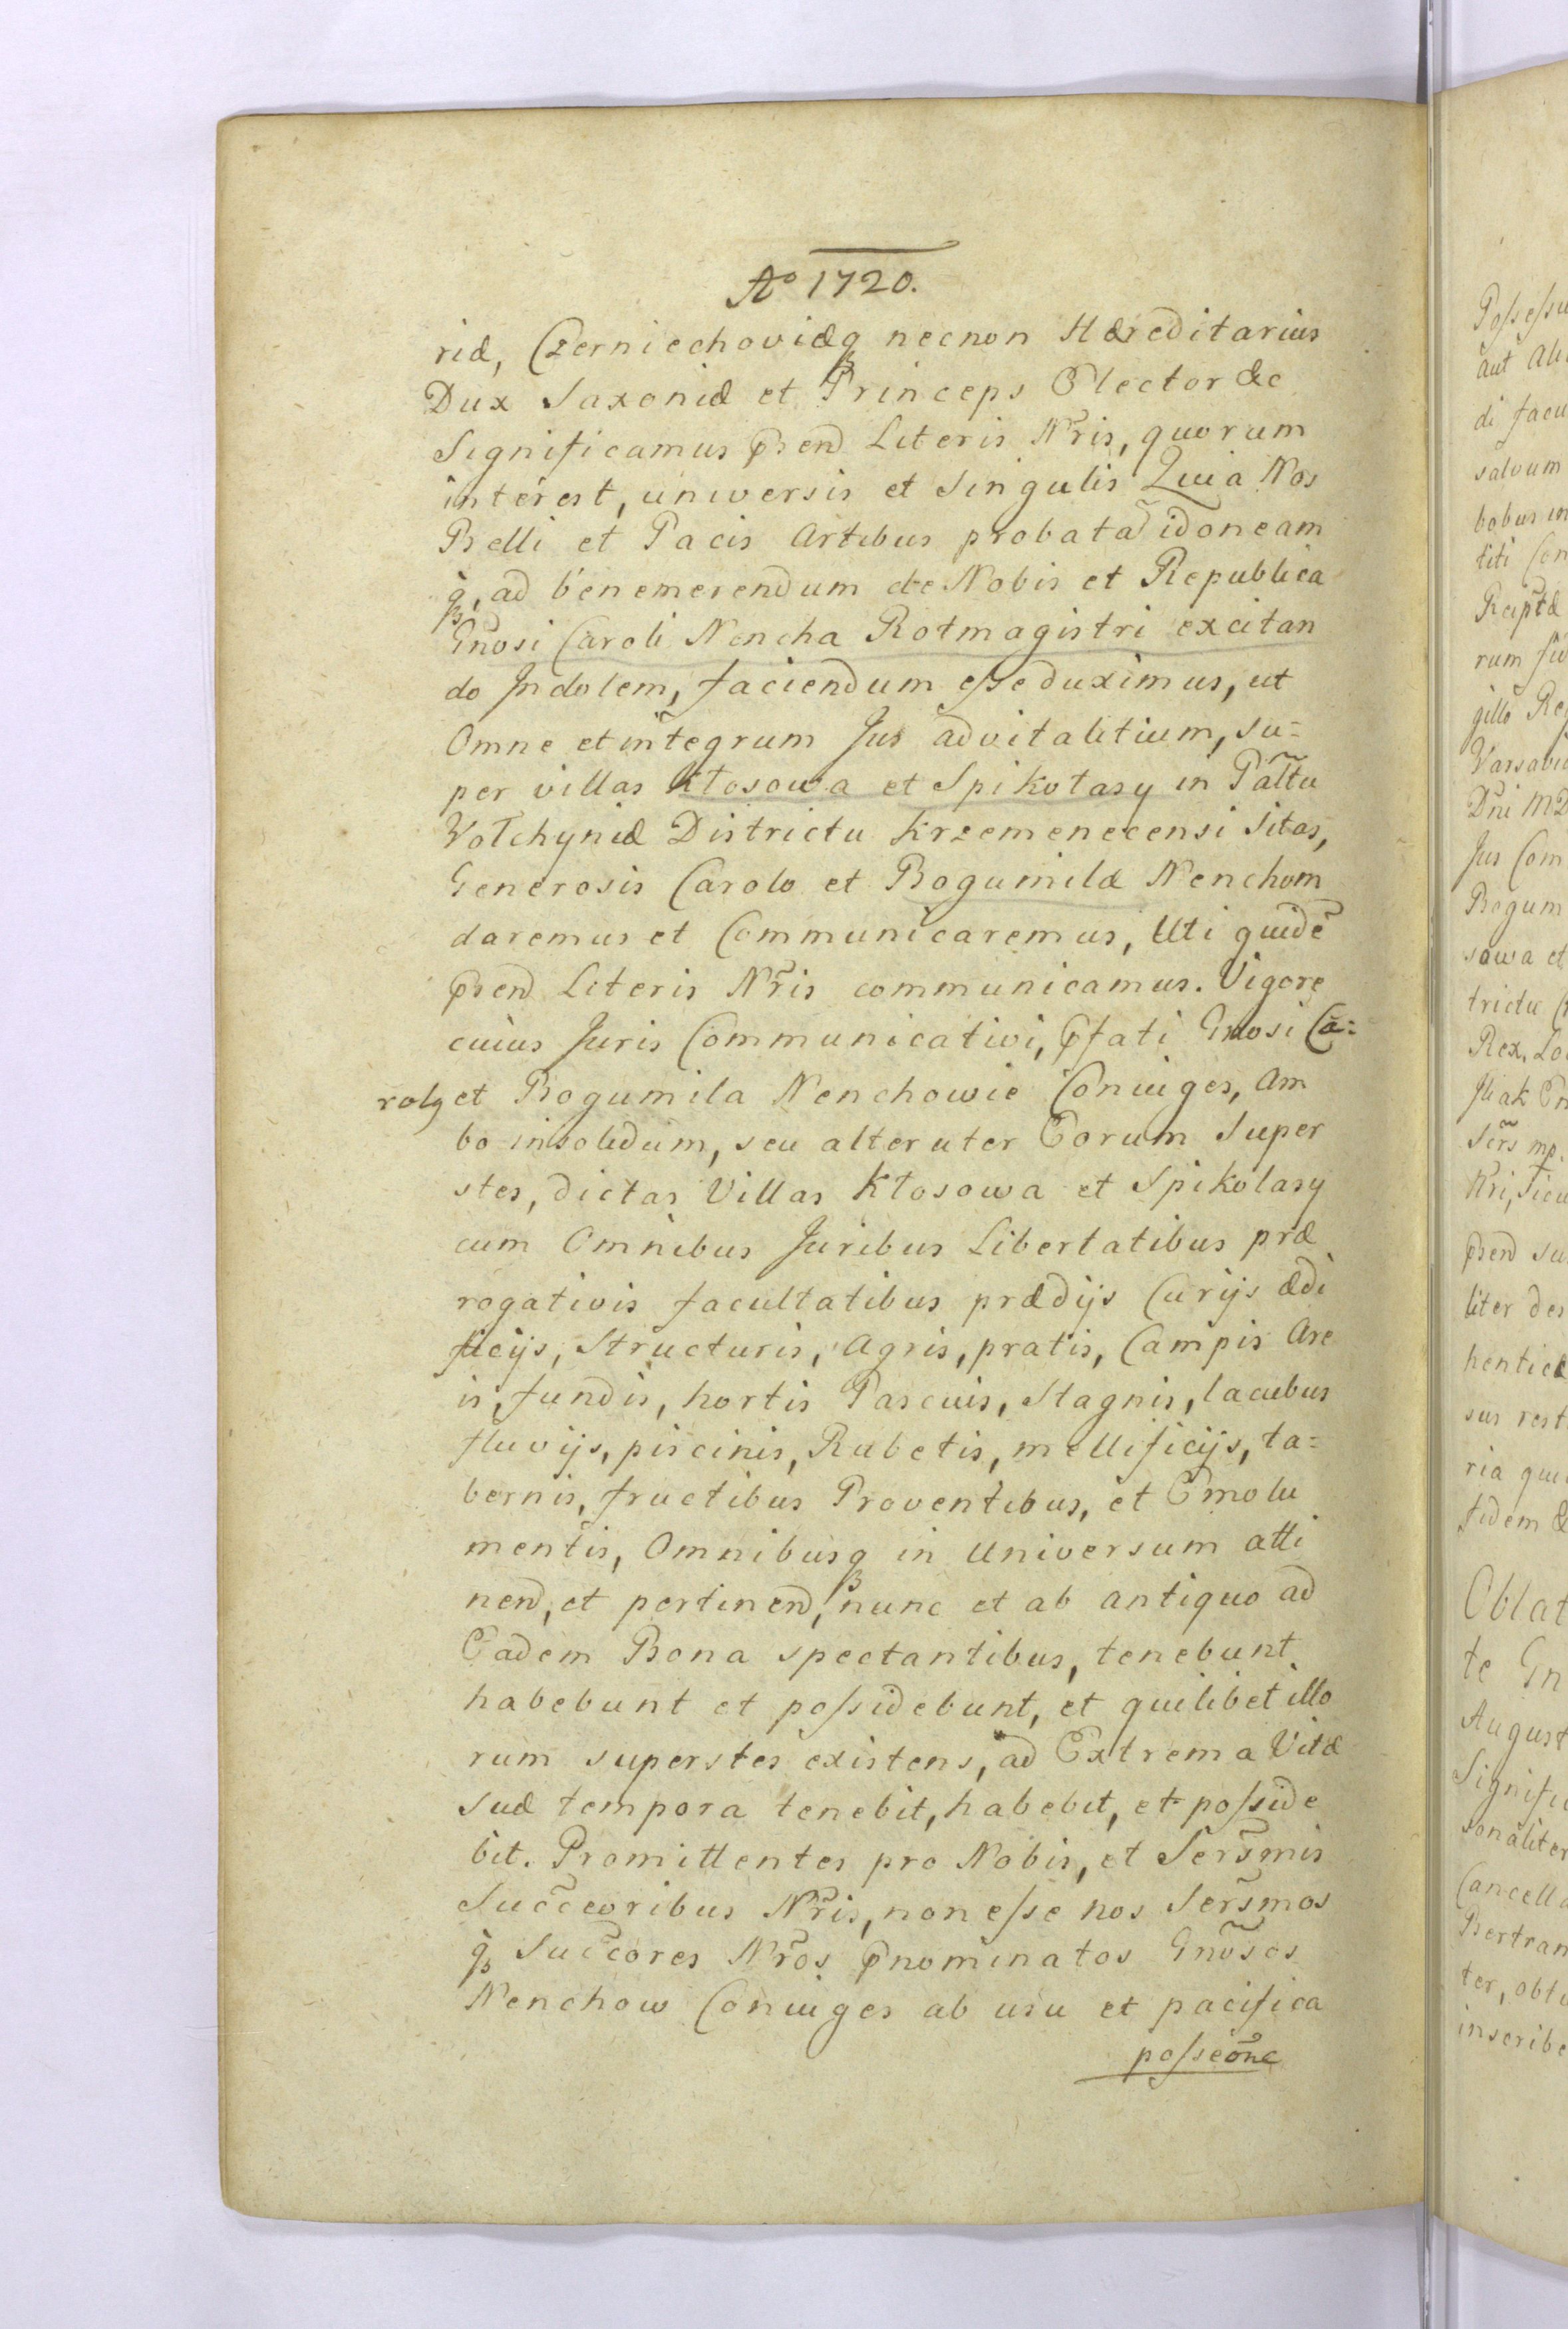 Aº 1720.
riæ, Czerniechoviæq necnon Hæreditarius
Dux Saxoniæ et Princeps Elector &c
Significamus pṡend Literis Nr̃is, quorum
interest, universis et Singulis Quia Nos
Belli et Pacis Artibus probatã idoneam
q̃, ad benemerendum de Nobis et Republica
Gnõsi Caroli Nencha Rotmagistri excitan
do Indolem, faciendum eſse duximus, ut
Omne et integrum Jus advitalitium, su=
per villas Kłosowa et Spikołasy in Pal̃tu
Volchyniæ Districtu Krzemenecensi Sitas,
Generosis Carolo et Bogumilæ Nenchom
daremus et Communicaremus, Uti quidẽ
pṡend Literis Nr̃is communicamus. Vigore
cuius Juris Communicativi, p̃fati Gnosi Ca=
rolg et Bogumila Nenchowie Coniuges, Am
bo insolidum, seu alteruter Eorum Super
stes, dictas Villas Kłosowa et Spikolasy
cum Omnibus Juribus Libertatibus præ
rogativis facultatibus prædijs Curijs ædi
ficijs, Structuris, Agris, pratis, Campis Are
is, fundis, hortis Pascuis, Stagnis, lacubus
fluvijs, piscinis, Rubetis, mellificijs, ta=
bernis, fructibus Proventibus, et Emolu
mentis, Omnibusq in Universum atti
nend, et pertinend, nunc et ab antiquo ad
Eadem Bona spectantibus, tenebunt
habebunt et poſsidebunt, et quilibet illo
rum superstes existens, ad Extrema Vitæ
suæ tempora tenebit, habebit, et poſside
bit. Promittentes pro Nobis, et Sers̃mis
Succeoribus Nr̃is, non eſse nos Sers̃mos
q̃ Succ̃ores Nr̃os p̃nominatos Gnõsos
Nenchow Coniuges ab usu et pacifica
poſseõne
Poſseſsi
aut Ali
di facu
salvum
bobus in
titi Con
Reiptæ
rum fid
gillo Re
Varsavi
Dni MD
Jus Com
Bogum
sowa et
trictu
Rex. Lo
Sers mp.
pṡend su
liter des
hentica
sus rest
ria qui
fidem &
Oblat
te Gn
August
Signifi
sonaliter
Cancella
Bertran
ter, obtu
inscribe